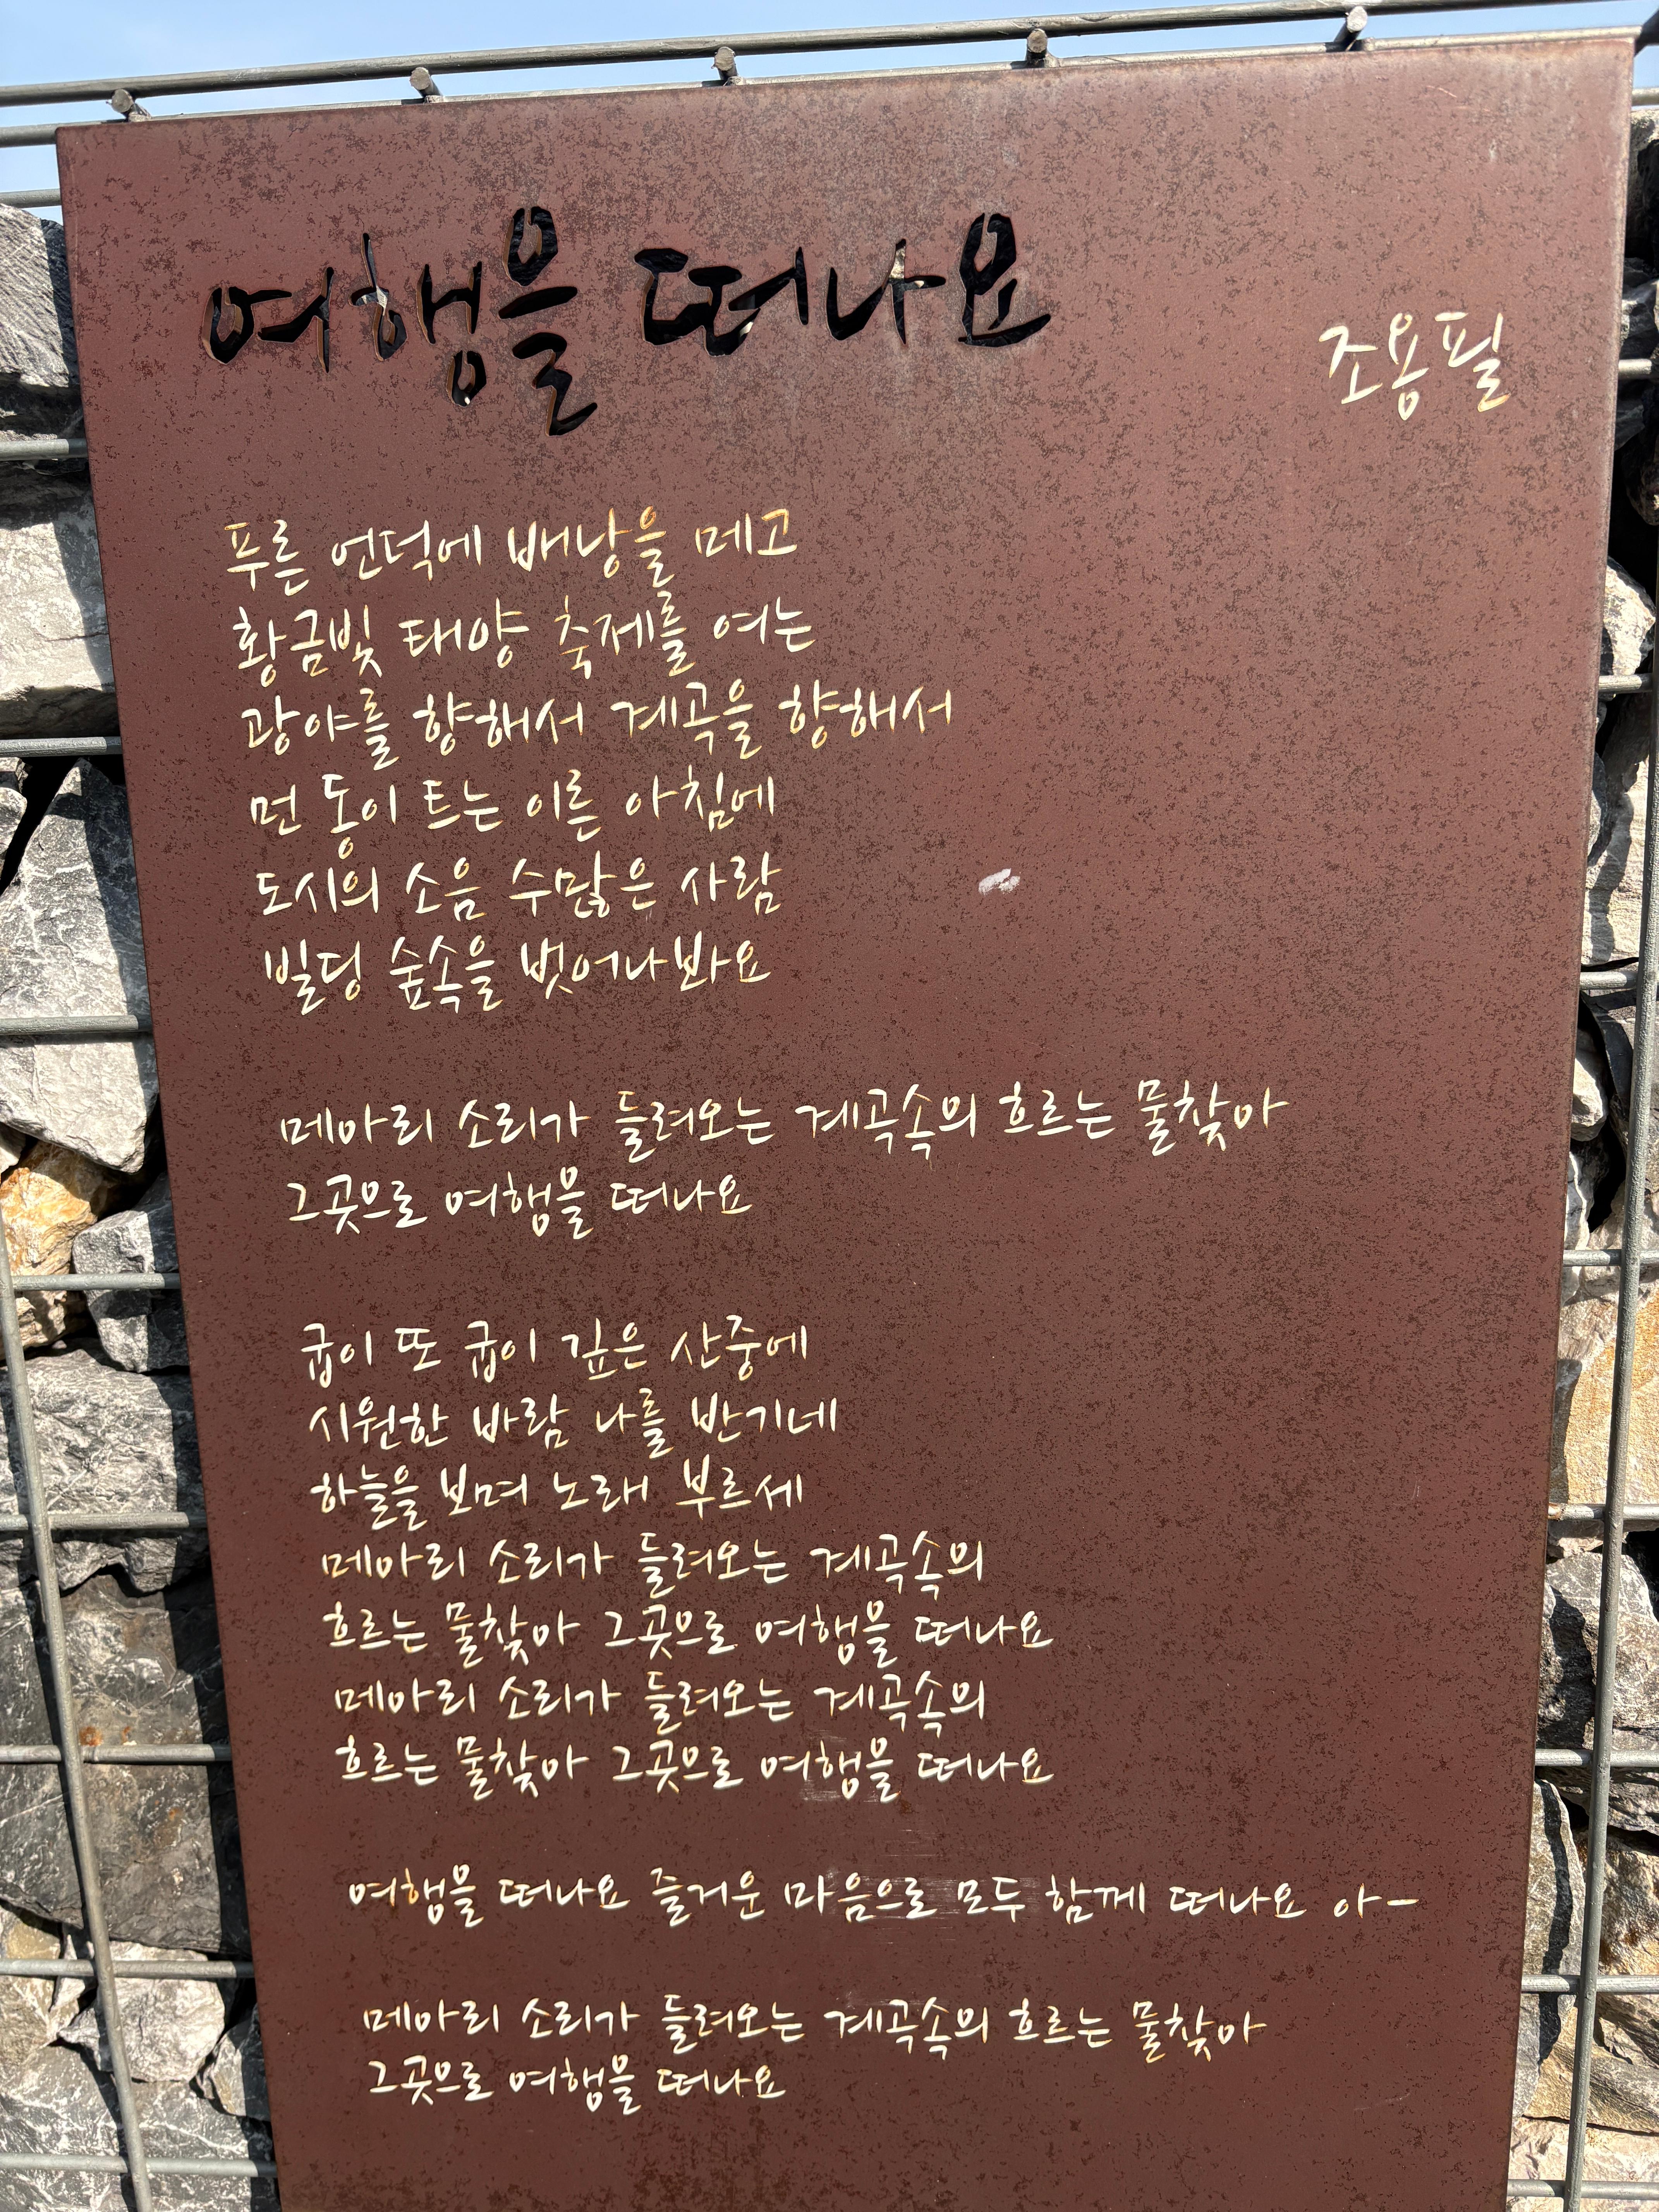 여행을 떠나요
조용필
푸른 언덕에 배낭을 메고
황금빛 태양 축제를 여는
광야를 향해서 계곡을 향해서
먼 동이 트는 이른 아침에
도시의 소음 수많은 사람
빌딩 숲속을 벗어나봐요
메아리 소리가 들려오는 계곡속의 흐르는 물찾아
그곳으로 여행을 떠나요
굽이 또 굽이 깊은 산중에
시원한 바람 나를 반기네
하늘을 보며 노래 부르세
메아리 소리가 들려오는 계곡속의
흐르는 물찾아 그곳으로 여행을 떠나요
메아리 소리가 들려오는 계곡속의
흐르는 물찾아 그곳으로 여행을 떠나요
여행을 떠나요 즐거운 마음으로 모두 함께 떠나요 아-
메아리 소리가 들려오는 계곡속의 흐르는 물찾아
그곳으로 여행을 떠나요